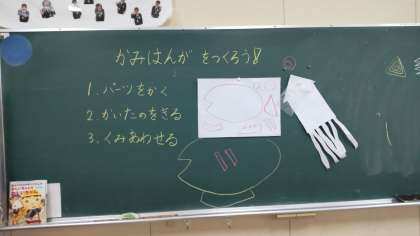 かみはんが をつくろう！
1. パーツをかく
2. かいたのをきる
3. くみあわせる